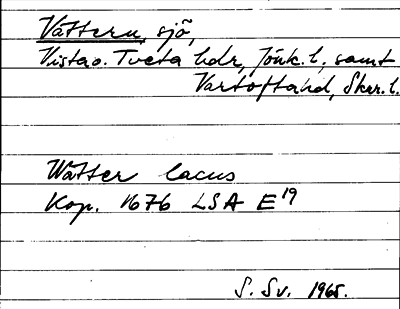 Vättern, sjö,
Vista o. Tveta hdr, Jönk. l., samt
Vartofta hd, Skar. l.
Wätter lacus
Kop. 1676 LSA E19
S. Sv. 1965.